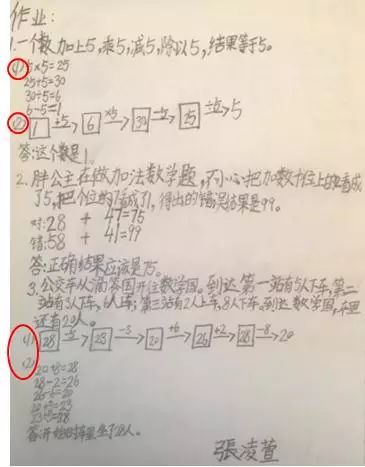 作业:
1.一个数加上5,乘5,减5,除以5,结果等于5。
(1)5×5=25
25+5=30
30÷5=6
6-5=1
(2) 1 +5→ 6 ×5→ 30 -5→ 25 ÷5→ 5
答:这个数是1。
2.胖公主在做加法数学题,不小心把加数十位上的2看成
了5,把个位的7看成了1,得出的错误结果是99。
对:28 + 47=75
错:58 + 41=99
答:正确结果应该是75。
3.公交车从 国开往数学国。到达第一站有5人下车,第二
站有3人下车,6人上车;第三站有2人上车,8人下车。到达数学国,车里
还有20人。
(1) 28 -5→ 23 -3→ 20 +6→ 26 +2→ 28 -8→ 20
(2)
20+8=28
28-2=26
26-6=20
20+3=23
23+5=28
答:开始时车里坐了28人。
張凌萱